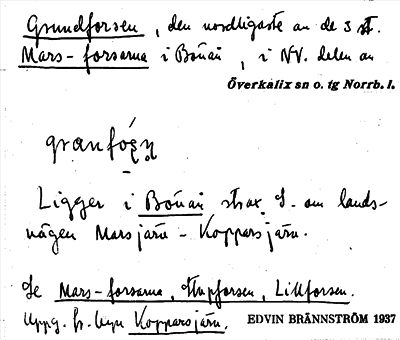 Grundforsen, den nordligaste an de 3 st.
Mars-forsarna i Bönån, i NV. delen av
Överkalix sn o. tg Norrb. l.
Ligger i Bönån strax S. om lands-
vägen Marsjärv - Kopparsjärv.
Se Mars-forsarna, Stupforsen, Lillforsen.
Uppg. fr. byn Kopparsjärv. EDVIN BRÄNNSTRÖM 1937